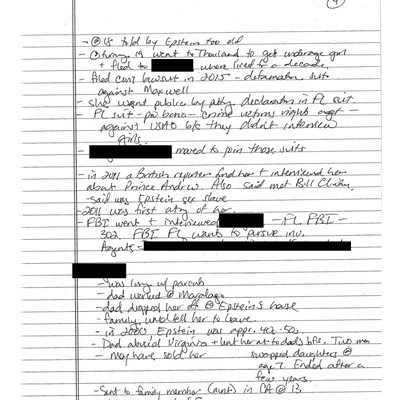 4
- @ 18 told by Epstein too old
- went to Thailand to get underage girl
+ fled to where lived for a decade.
- filed civil lawsuit in 2015 - defamation suit
against Maxwell
- She went public by atty. declaration in PL suit.
- PL suit - pro bono - crime victims rights
against USAO b/c they didn't interview
girls.
- moved to join those suits
- in 2011 a British reporter find her + interviewed her
about Prince Andrew. Also said met Bill Clinton,
- said was Epstein sex slave
- 2011 was first of her.
- FBI went + interviewed - FL FBI -
302. FBI FL wants to pursue inv.
Agents -
- was living w/ parents
- dad worked @ Maralago
- dad dropped her at @ Epstein's house
- family told her to leave.
- in 2000 Epstein was appr. 40s-50s.
- Dad abused Virginia + lent her to dad's bfs. Two men
- May have sold her swapped daughters @
age 7. Ended after a
few years.
- Sent to family member (aunt) in CA @ 13